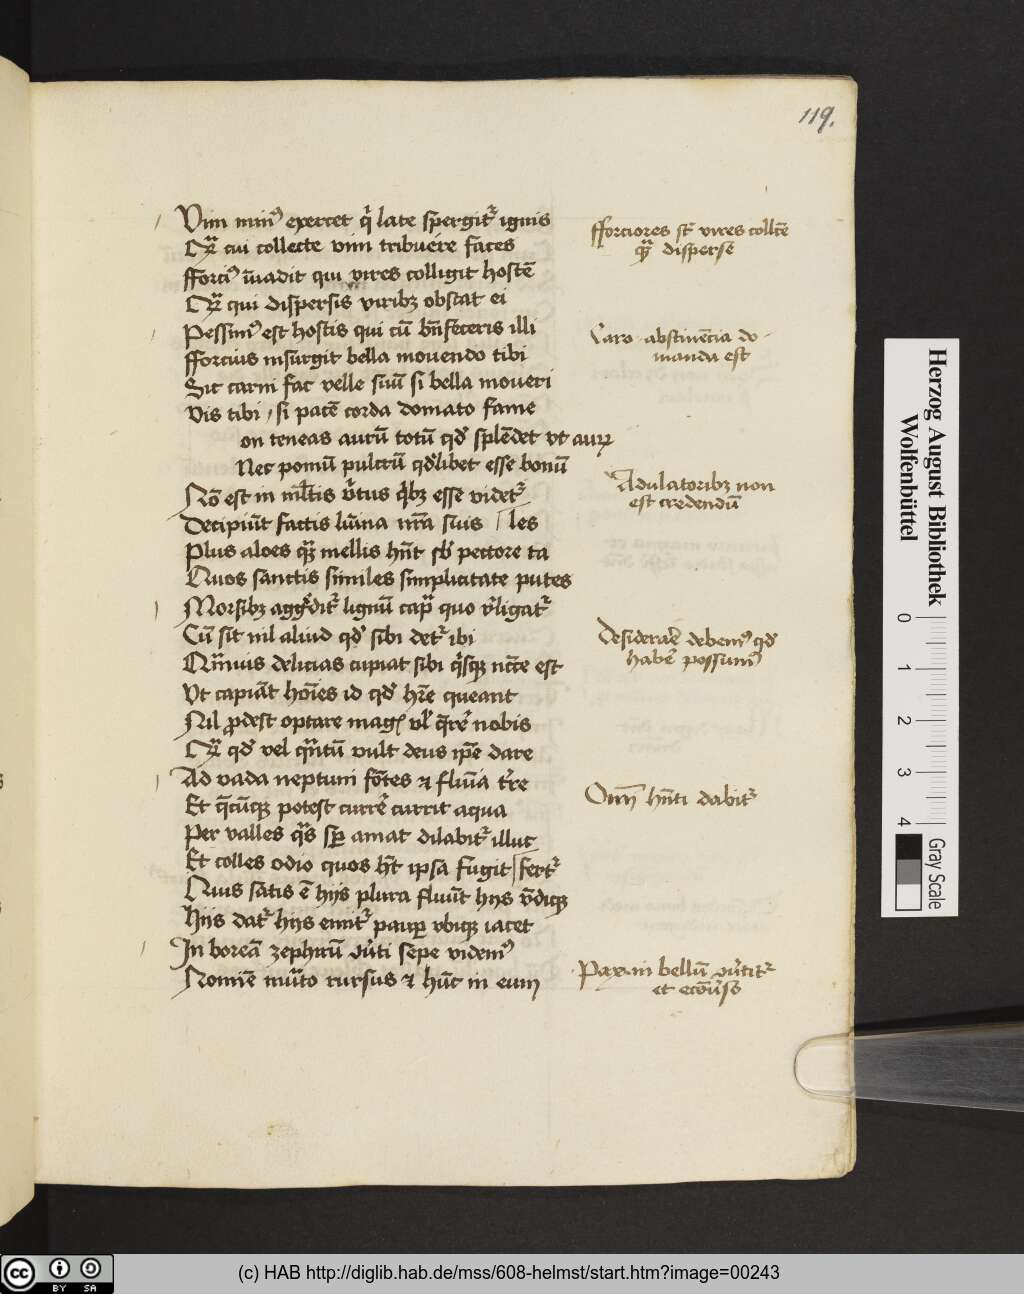 119.
Vim min⁹ exercet q̇ late spergit᷒ ignis
Qͣ cui collecte vim tribuere faces
fforci⁹ īvadit qui vires colligit hostē
Qͣ qui dispersis viribꝫ obstat ei
Pessim⁹ est hostis qui cū bn̄feceris illi
fforcius insurgit bella movendo tibi
Sit carni fac velle suū si bella moveri
Vis tibi, si pacē corda domato fame
on teneas aurū totū qd᷒ splēdet vt auꝝ
Nec pomū pulcrū qd᷒libet esse bonū
Nō est in ml̄tis v᷒tus qᷓbꝫ esse videt᷒
Decipiūt factis lūina nr̄a suis les
Plus aloes qͣꝫ mellis hn̄t sb᷒ pectore ta
Quos sanctis similes simplicitate putes
Morsibꝫ agg᷒dit᷒ lignū capͣ quo r᷒ligat᷒
Cū sit nil aliud qd᷒ sibi det᷒ ibi
Qͣmuis delicias cupiat sibi q̇sqꝫ nc̄te est
Vt capiāt hoīes id qd᷒ hr̄e queant
Nil ꝓdest optare mag᷒ vl᷒ q̄rer᷒ nobis
Qͣ qd᷒ vel qͣntū vult deus ip̄e dare
Ad vada neptuni fōtes ⁊ flūīa t᷒re
Et q̄cūqꝫ potest currer᷒ currit aqua
Per valles qͣs sꝑ amat dilabit᷒ illuc
Et colles odio quos hꝫt ipsa fugit fert᷒
Quis satis ē hijs plura fluūt hijs v̄diqꝫ
Hijs dat᷒ hijs emit᷒ pauꝑ vbiqꝫ iacet
In boreā zephirū v᷒ti sepe videm⁹
Nomīe mutͣto rursus ⁊ hūc in eum
fforciores st᷒ vires collc̄e
qͣ disperse
Caro abstinēcia do-
manda est
Adulatoribꝫ non
est credendū
Desiderar᷒ debem⁹ qd᷒
haber᷒ possum⁹
Om̄ hn̄ti dabit᷒
Pax in bellū v᷒tit᷒
et ecōv᷒so
Herzog August Bibliothek
Wolfenbüttel
0
1
2
3
4
Gray Scale
cc
BY SA
(c) HAB http://diglib.hab.de/mss/608-helmst/start.htm?image=00243